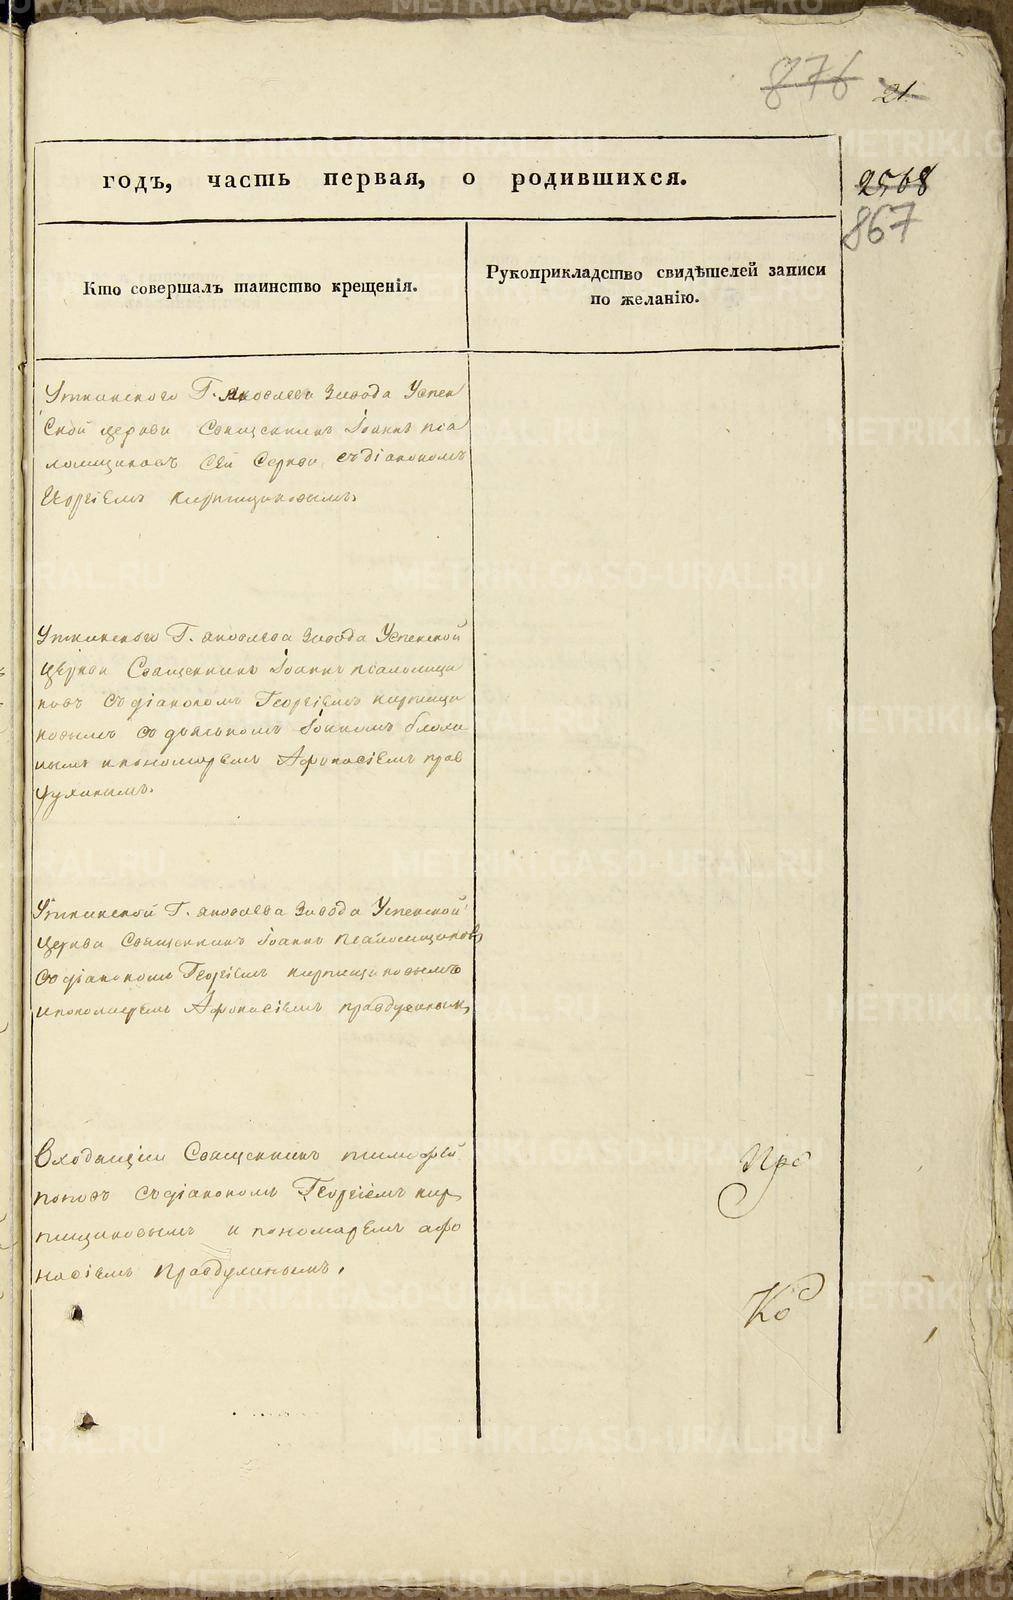 876 21
годъ, часть первая, о родившихся.
2568
867
Кто совершалъ таинство крещенія.
Рукоприкладство свидѣтелей записи
по желанію.
Уткинского Г. Яковлева Завода Успен
ской церкви Священникъ Іоаннъ пса
ломщиковъ сей Церкви съ діакономъ
Георгіемъ кирпищиковымъ
Уткинского Г. яковлева Завода Успенской
Церкви Священникъ Іоаннъ псаломщи
ковъ съ діакономъ Георгіемъ кирпищи
ковымъ со дьячкомъ Іоанномъ
нымъ и пономаремъ Афонасіемъ прав
Уткинской Г. яковлева Завода Успенской
Церкви Священникъ Іоаннъ псаломщиковъ
съ діакономъ Георгіемъ кирпищиковымъ
и пономаремъ Афонасіемъ правдухинымъ
Входящіи Священникъ тимофей
поповъ съ діакономъ Георгіемъ кир
пищиковымъ и пономаремъ афо
насіемъ Правдухинымъ.
Про
Ко
METRIKI.GASO-URAL.RU